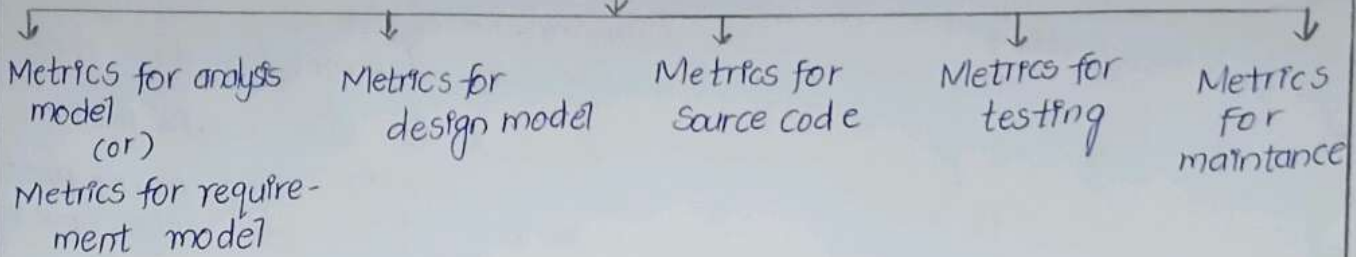 Metrics for analysis
model
(or)
Metrics for require-
ment model
Metrics for
design model
Metrics for
source code
Metrics for
testing
Metrics
for
maintance